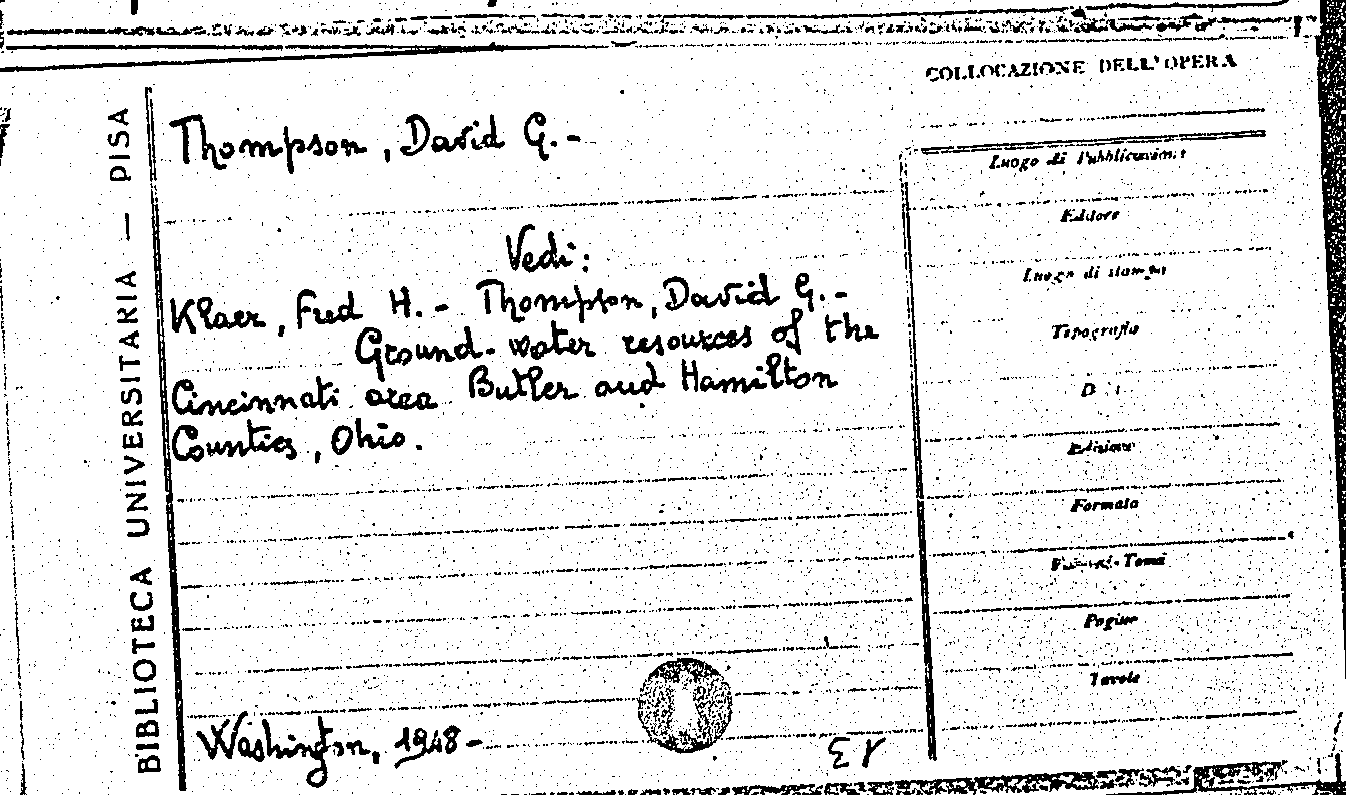 COLLOCAZIONE DELL'OPERA
BIBLIOTECA UNIVERSITARIA — PISA
Thompson, David G. -
Vedi:
Klaer, Fred H. - Thompson, David G. -
Ground-water resources of the
Cincinnati area Butler and Hamilton
Counties, Ohio.
Washington, 1948 -
Luogo di Pubblicazione
Editore
Luogo di stampa
Tipografia
Edizione
Formato
Pagine
Tavole